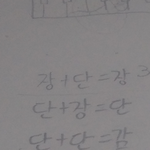 장+단=장 3
단+장=단
단+단=감